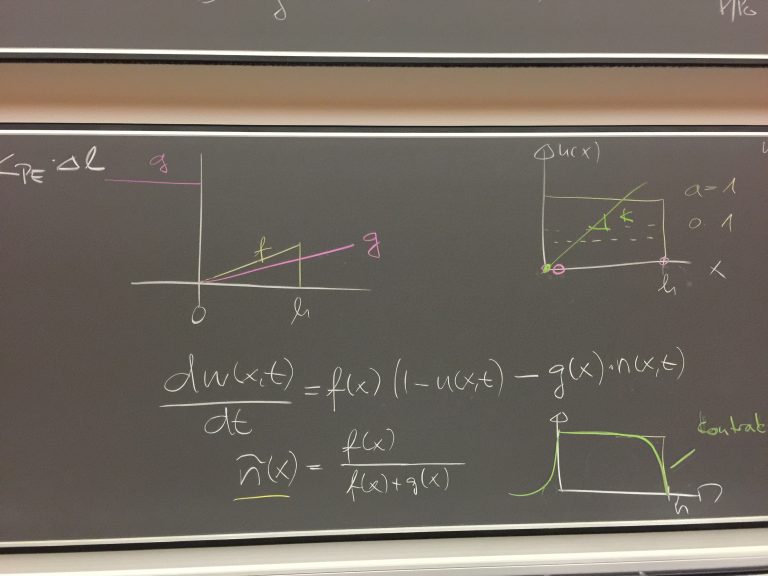 K_PE · Δl
g
f
g
0
h
n(x)
a = 1
0.1
k
h
x
dn(x,t)/dt = f(x) (1 - n(x,t)) - g(x) · n(x,t)
ñ(x) = f(x) / f(x)+g(x)
kontrak
h